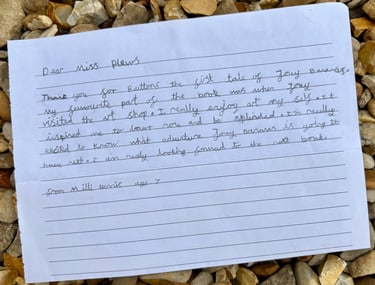 Dear Miss Plews
Thank you for Buttons the first tale of Joey Bananas.
My favourite part of the book was when Joey
visited the art shop. I really enjoy art my self. It
inspired me to lower now and be splended. I'm really
excited to know what adventure Joey Bananas is going to
have next. I am really looking forward to the next book.
from Milli age 7